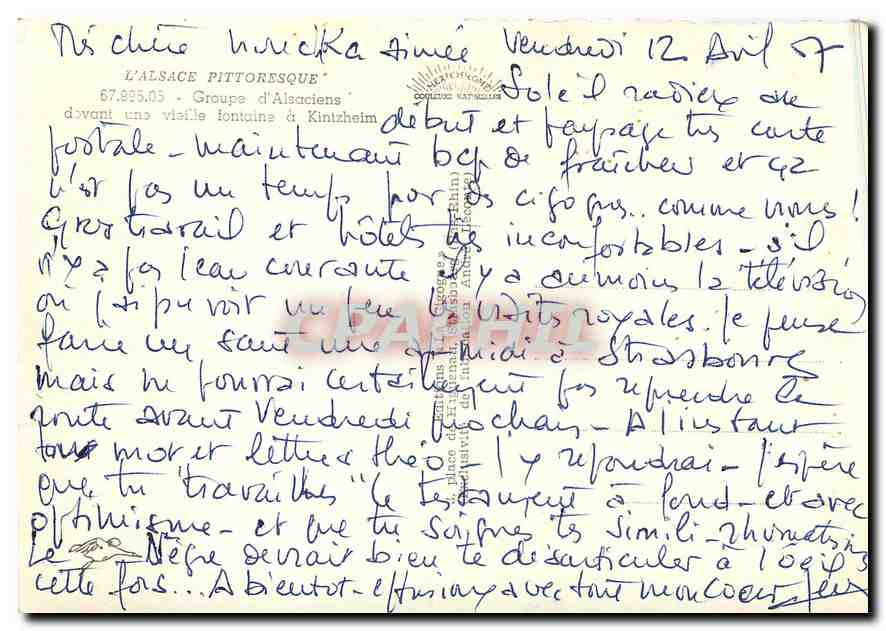 Très chère aimée Vendredi 12 Avril 57
L'ALSACE PITTORESQUE
67.995.05 - Groupe d'Alsaciens
devant une vieille fontaine à Kintzheim
MEXICHROME
COULEURS NATURELLES
Soleil radieux au
début et paysage très carte
postale - maintenant bcp de fraîcheur et ça
n'est pas un temps pour les cigognes.. comme nous !
Gros travail et hôtels très inconfortables - s'il
n'y a pas l'eau courante il y a au moins la télévision
où j'ai pu voir un peu les visites royales. Je pense
faire un saut une ap. midi à Strasbourg
mais ne pourrai certainement pas reprendre la
route avant Vendredi prochain - A l'instant
ton mot et lettre théo - J'y répondrai - J'espère
que tu "travailles" le testament à fond - et avec
optimisme - et que tu soignes tes simili-rhumatismes
Le Nègre devrait bien te désarticuler à
cette fois... A bientôt - effusions avec tout mon coeur
Editions "La Cigogne"
place de Haguenau, Strasbourg (Bas-Rhin)
Exclusivité de Fabrication André Leconte
CPAPHIL